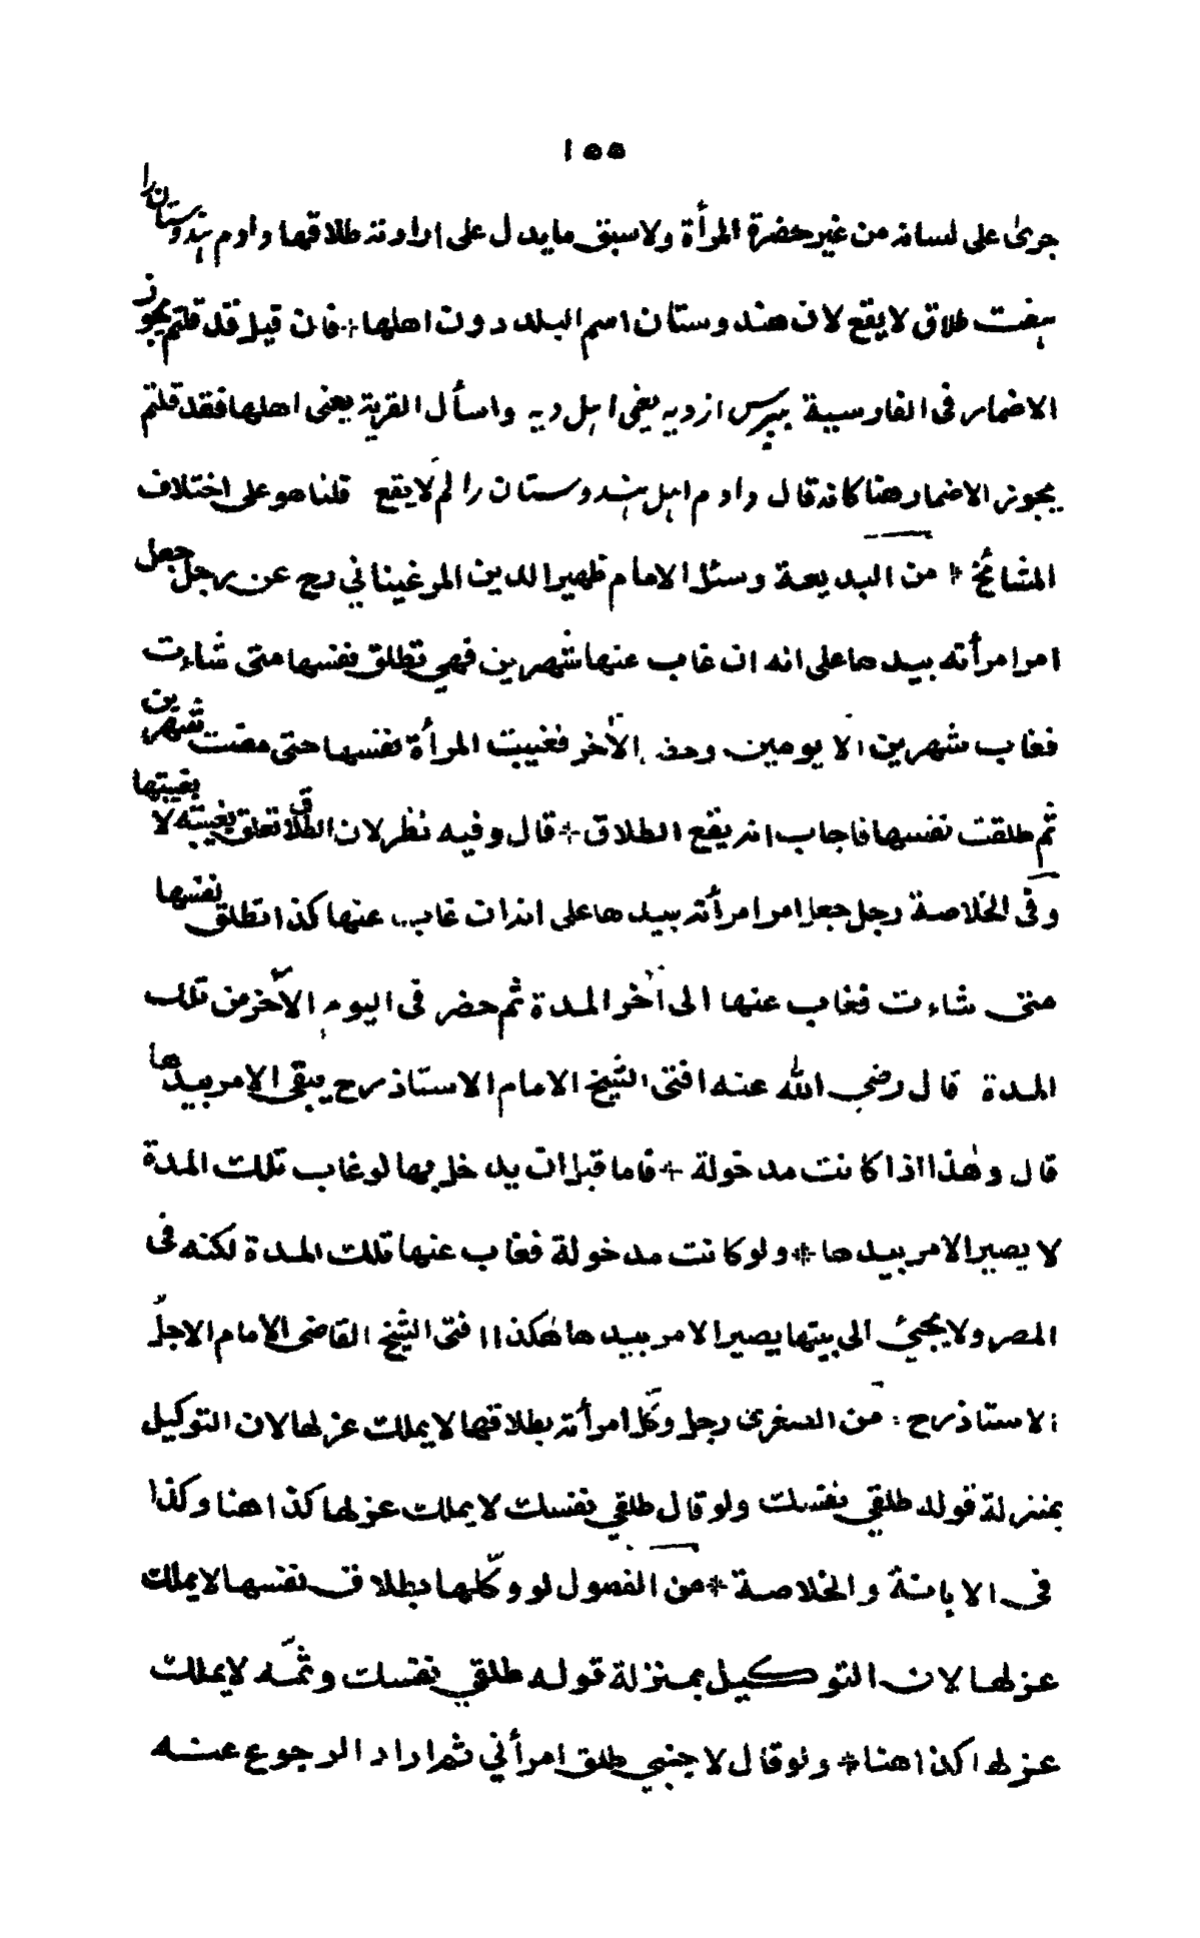 ١٥٥
جرى على لسانه من غير حضرة المرأة ولا سبق ما يدل على ارادته طلاقها دادم هندوستان را
هفت طلاق لا يقع لان هندوستان اسم البلد دون اهلها * فان قيل قد قلتم يجوز
الاضمار فى الفارسية بپرس ازديه يعنى اهل ديه واسأل القرية يعنى اهلها فقد قلتم
يجوز الاضمار هنا كانه قال دادم اهل هندوستان را لم لا يقع قلنا هو على اختلاف
المشائخ * من البديعة وسئل الامام ظهير الدين المرغيناني رح عن رجل جعل
امر امرأته بيدها على انه ان غاب عنها شهرين فهي تطلق نفسها متى شاءت
فغاب شهرين الا يومين وحضر الآخر فغيبت المرأة نفسها حتى مضت شهرين بغيبتها
ثم طلقت نفسها فاجاب انه يقع الطلاق * قال وفيه نظر لان الطلاق تعلق بغيبته لا
وفى الخلاصة رجل جعل امر امرأته بيدها على انه ان غاب عنها كذا تطلق نفسها
متى شاءت فغاب عنها الى آخر المدة ثم حضر فى اليوم الآخر من تلك
المدة قال رضي الله عنه افتى الشيخ الامام الاستاذ رح يبقى الامر بيدها
قال وهذا اذا كانت مدخولة * فاما قبل ان يدخل بها لو غاب تلك المدة
لا يصير الامر بيدها * ولو كانت مدخولة فغاب عنها تلك المدة لكنه فى
المصر ولا يجيئ الى بيتها يصير الامر بيدها هكذا افتى الشيخ القاضى الامام الاجلّ
الاستاذ رح * من الصغرى رجل وكّل امرأته بطلاقها لا يملك عزلها لان التوكيل
بمنزلة قوله طلقي نفسك ولو قال طلقي نفسك لا يملك عزلها كذا هنا وكذا
فى الابانة والخلاصة * من الفصول لو وكّلها بطلاق نفسها لا يملك
عزلها لان التوكيل بمنزلة قوله طلقي نفسك وثمّه لا يملك
عزلها كذا هنا * ولو قال لاجنبي طلق امرأتي ثم اراد الرجوع عنه